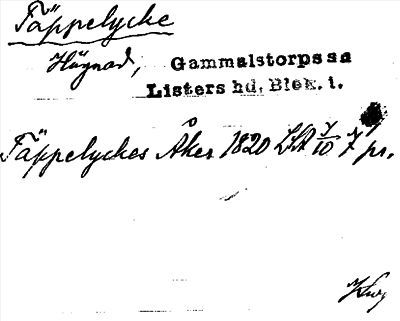 Täppelycke
Hägnad, Gammalstorps sa
Listers hd. Blek. l.
Täppelyckes Åker 1820 LSA 7/10 7 pr.